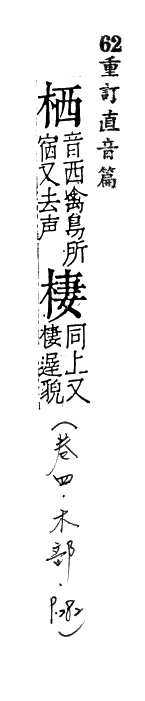 62重訂直音篇
栖音西禽鳥所宿又去声棲同上又棲遑貌
(卷四·木部·P.282)